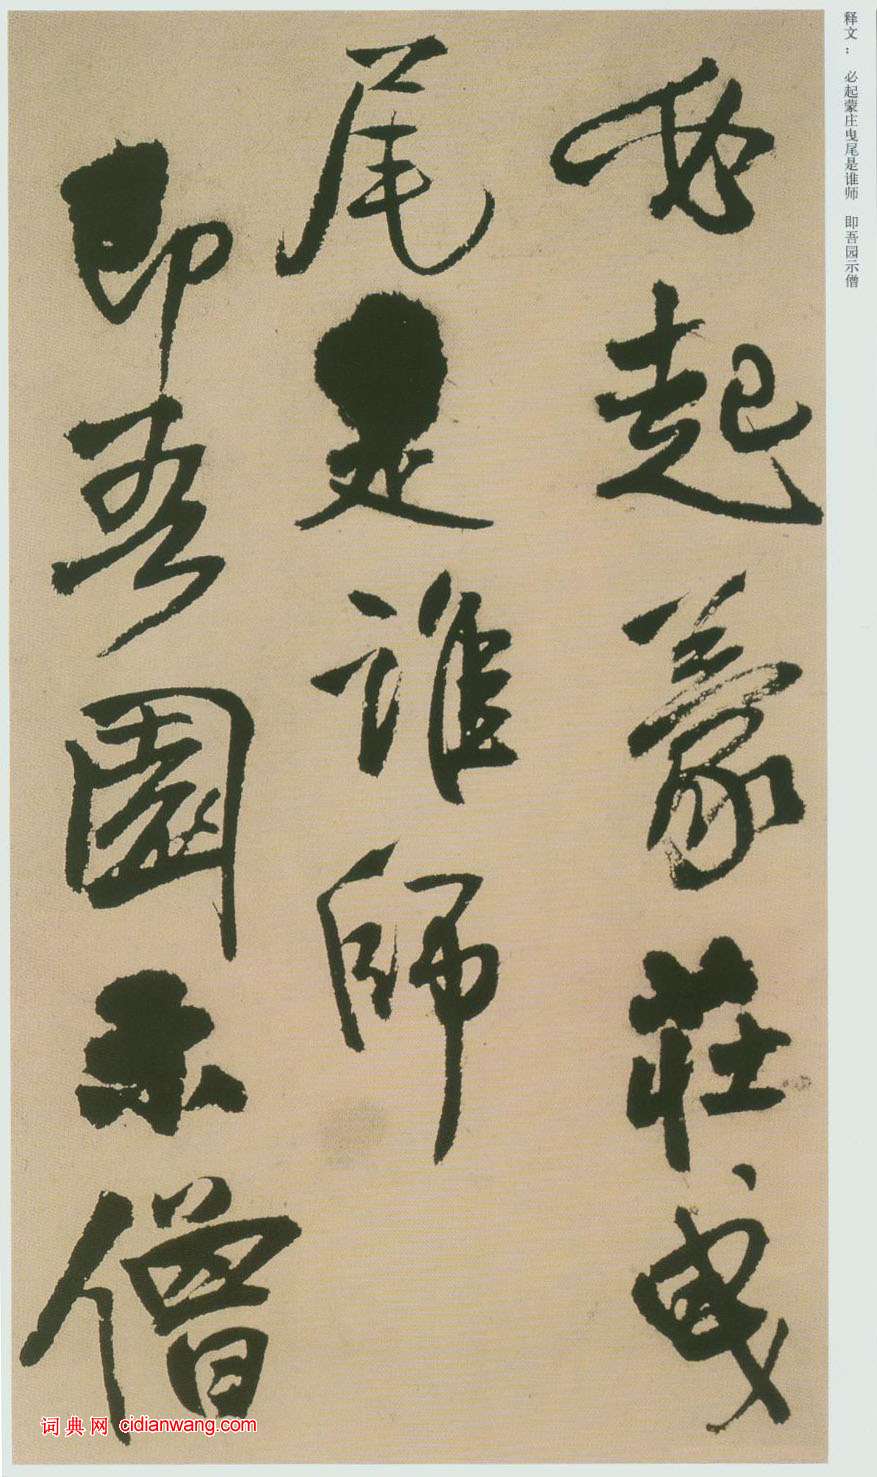 释文： 必起蒙庄曳尾是谁师 即吾园示僧
必起蒙莊曳
尾是誰師
即吾園示僧
词典网 cidianwang.com